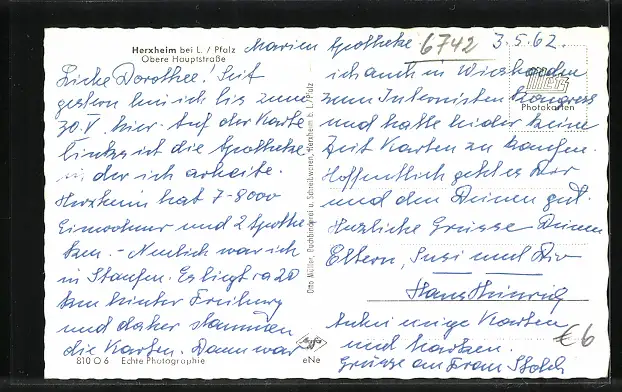 Herxheim bei L. / Pfalz
Obere Hauptstraße
Marien Apotheke 6742 3.5.62.
Liebe Dorothee! Seit
gestern bin ich bis zum
30.V. hier. Auf der Karte
links ist die Apotheke
in der ich arbeite.
Herxheim hat 7-8000
Einwohner und 2 Apothe
ken. - Neulich war ich
in Staufen. Es liegt ca 20
km hinter Freiburg
und daher stammen
die Karten. Dann war
810 O 6 Echte Photographie
Otto Müller, Buchbinderei u. Schreibwaren, Herxheim b. L./Pfalz
Agfa
eNe
ich auch in Wiesbaden
zum Internisten Kongress
und hatte leider keine
Zeit Karten zu kaufen.
Hoffentlich geht es Dir
und den Deinen gut.
Herzliche Grüsse Deinen
Eltern, Susi und Dir
Hans Heinrich
Anbei einige Karten
und Marken.
Grüsse an Frau Stolch
Photokarten
€6